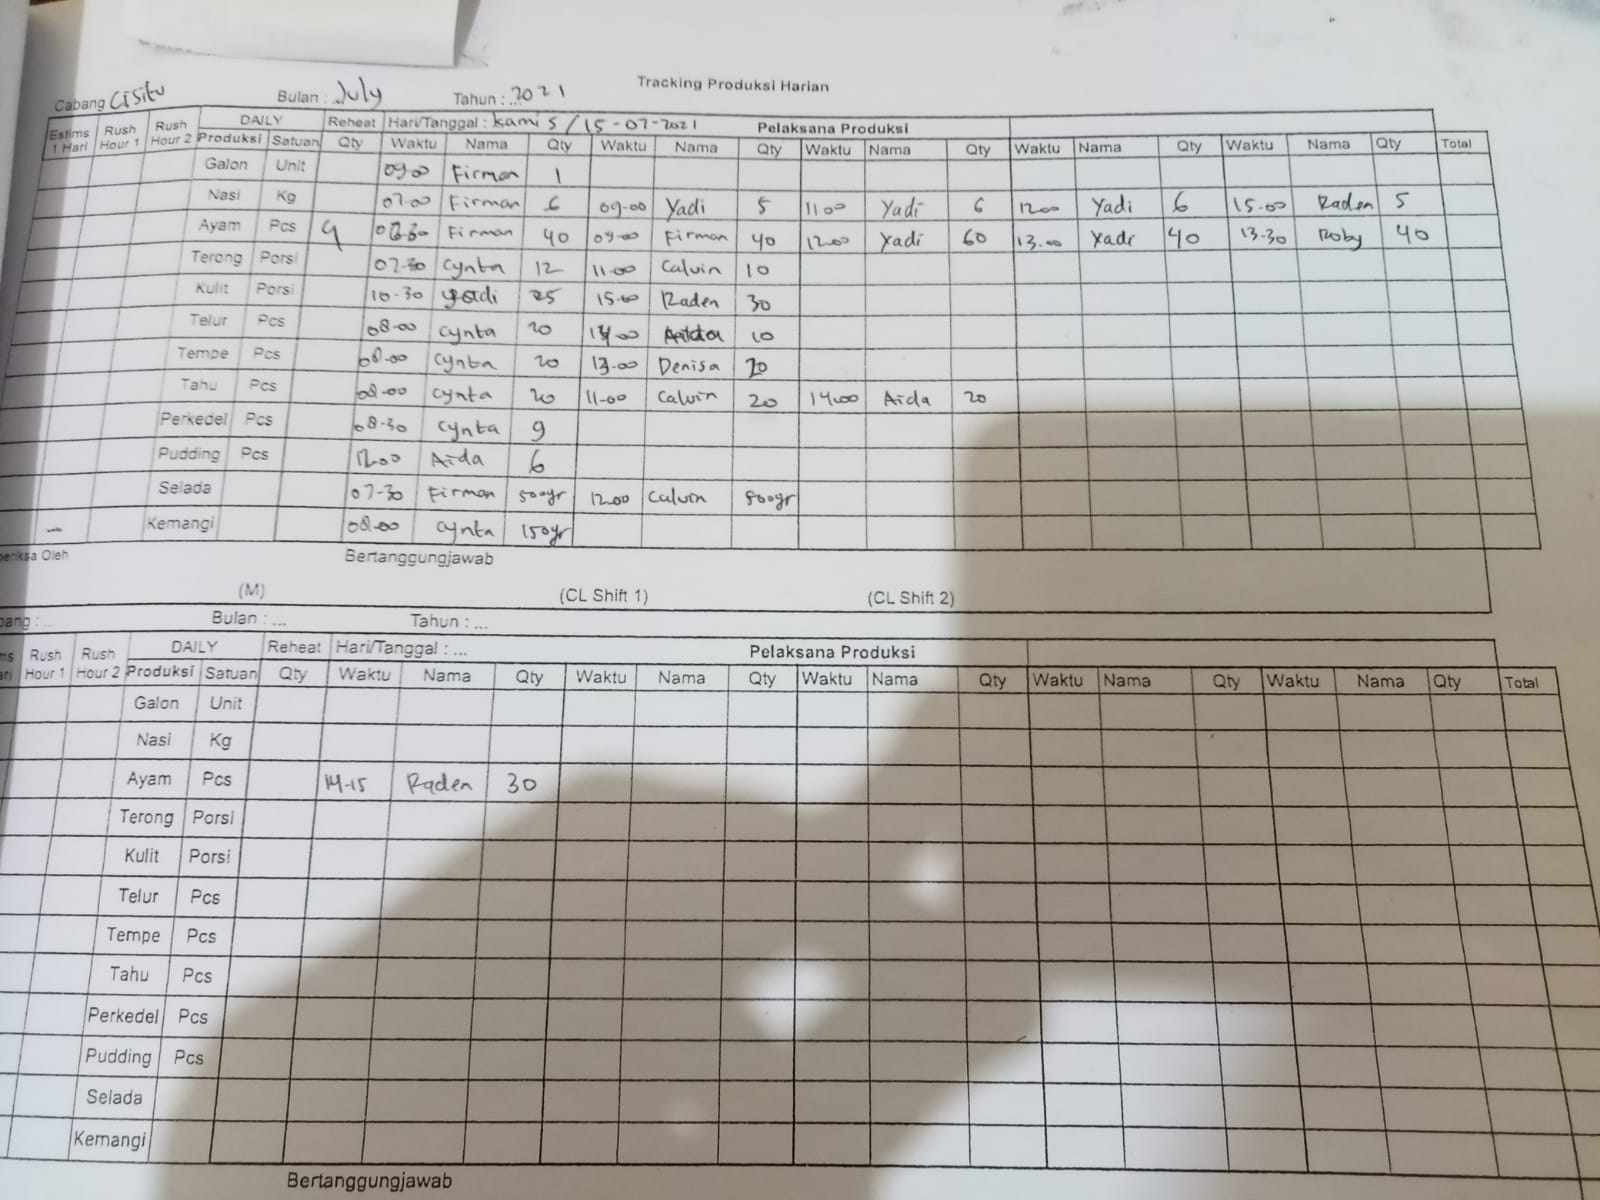 Tracking Produksi Harian
Cabang Cisitu Bulan : July Tahun : 2021
Estims 1 Hari Rush Hour 1 Rush Hour 2 DAILY Reheat Hari/Tanggal : Kamis / 15-07-2021 Pelaksana Produksi
Produksi Satuan Qty Waktu Nama Qty Waktu Nama Qty Waktu Nama Qty Waktu Nama Qty Waktu Nama Qty Total
Galon Unit 09.00 Firman 1
Nasi Kg 07.00 Firman 6 09.00 Yadi 5 11.00 Yadi 6 12.00 Yadi 6 15.00 Raden 5
Ayam Pcs 9 Firman 40 09.00 Firman 40 12.00 Yadi 60 13.00 Yadi 40 13.30 Roby 40
Terong Porsi 07-30 Cynta 12 11.00 Calvin 10
Kulit Porsi 10-30 Yadi 25 15.00 Raden 30
Telur Pcs 08-00 Cynta 20 10
Tempe Pcs 08.00 Cynta 20 13.00 Denisa 20
Tahu Pcs 08-00 Cynta 20 11-00 Calvin 20 14.00 Aida 20
Perkedel Pcs 08-30 Cynta 9
Pudding Pcs 12.00 Aida 6
Selada 07-30 Firman 500gr 12.00 Calvin 500gr
Kemangi 08.00 Cynta 150gr
periksa Oleh Bertanggungjawab
(M) (CL Shift 1) (CL Shift 2)
bang : ... Bulan : ... Tahun : ...
Rush Hour 1 Rush Hour 2 DAILY Reheat Hari/Tanggal : ... Pelaksana Produksi
Produksi Satuan Qty Waktu Nama Qty Waktu Nama Qty Waktu Nama Qty Waktu Nama Qty Waktu Nama Qty Total
Galon Unit
Nasi Kg
Ayam Pcs 14-15 Raden 30
Terong Porsi
Kulit Porsi
Telur Pcs
Tempe Pcs
Tahu Pcs
Perkedel Pcs
Pudding Pcs
Selada
Kemangi
Bertanggungjawab